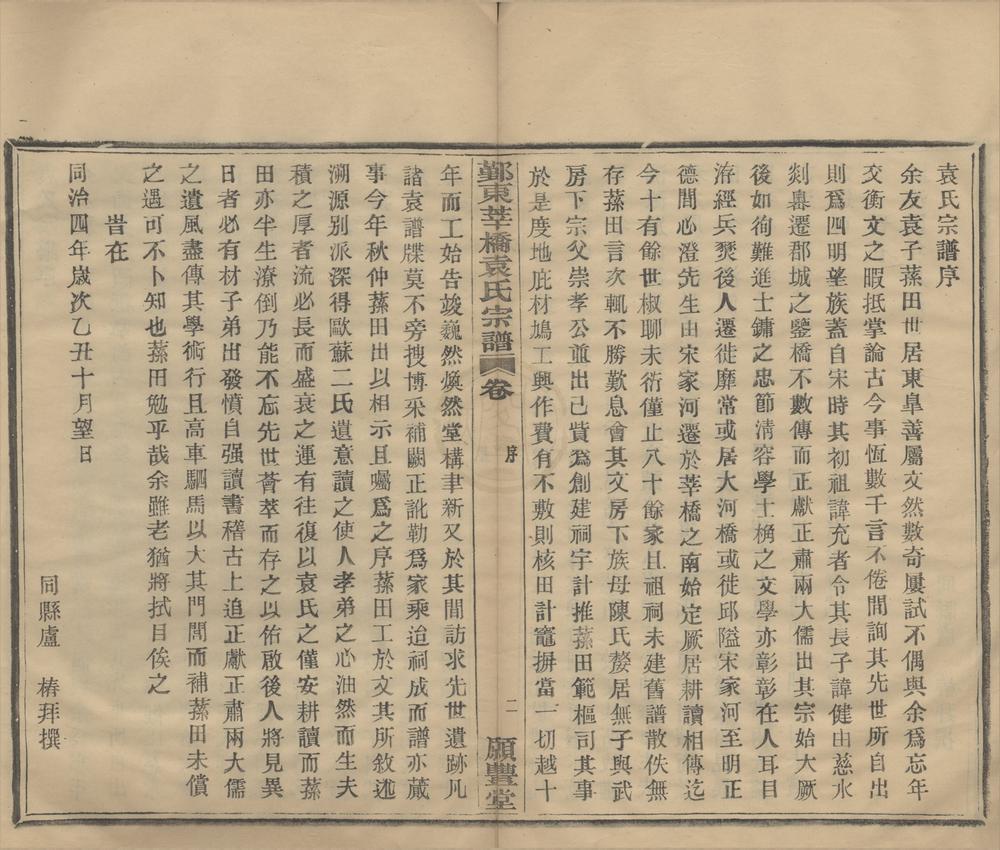 袁氏宗譜序
余友袁子蓀田世居東阜善屬文然數奇屢試不偶與余爲忘年
交衡文之暇抵掌論古今事恆數千言不倦間詢其先世所自出
則爲四明望族蓋自宋時其初祖諱充者令其長子諱健由慈水
剡嶴遷郡城之鑒橋不數傳而正獻正肅兩大儒出其宗始大厥
後如徇難進士鏞之忠節淸容學士桷之文學亦彰彰在人耳目
洊經兵燹後人遷徙靡常或居大河橋或徙邱隘宋家河至明正
德間心澄先生由宋家河遷於莘橋之南始定厥居耕讀相傳迄
今十有餘世椒聊未衍僅止八十餘家且祖祠未建舊譜散佚無
存蓀田言次輒不勝歎息會其文房下族母陳氏嫠居無子與武
房下宗父崇孝公並出己貲爲創建祠宇計推蓀田範樞司其事
於是度地庇材鳩工興作費有不敷則核田計竈摒當一切越十
鄞東莘橋袁氏宗譜 卷 序 二 願豐堂
年而工始告竣巍然煥然堂構聿新又於其間訪求先世遺跡凡
諸袁譜牒莫不旁搜博采補闕正訛勒爲家乘迨祠成而譜亦蕆
事今年秋仲蓀田出以相示且囑爲之序蓀田工於文其所敘述
溯源别派深得歐蘇二氏遺意讀之使人孝弟之心油然而生夫
積之厚者流必長而盛衰之運有往復以袁氏之僅安耕讀而蓀
田亦半生潦倒乃能不忘先世薈萃而存之以佑啟後人將見異
日者必有材子弟出發憤自强讀書稽古上追正獻正肅兩大儒
之遺風盡傳其學術行且高車駟馬以大其門閭而補蓀田未償
之遇可不卜知也蓀田勉乎哉余雖老猶將拭目俟之
旹在
同治四年歲次乙丑十月望日
同縣盧 椿拜撰